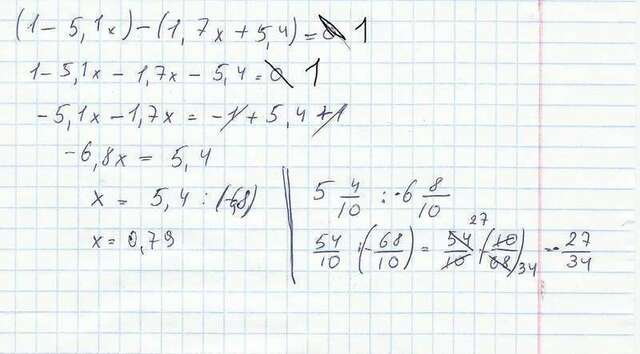 (1 - 5,1x) - (1,7x + 5,4) = 1
1 - 5,1x - 1,7x - 5,4 = 1
-5,1x - 1,7x = -1 + 5,4 + 1
-6,8x = 5,4
x = 5,4 : (-6,8)
x = 0,79
5 4/10 : -6 8/10
54/10 : (-68/10) = 54/10 · (-10/68) = -27/34
27
34